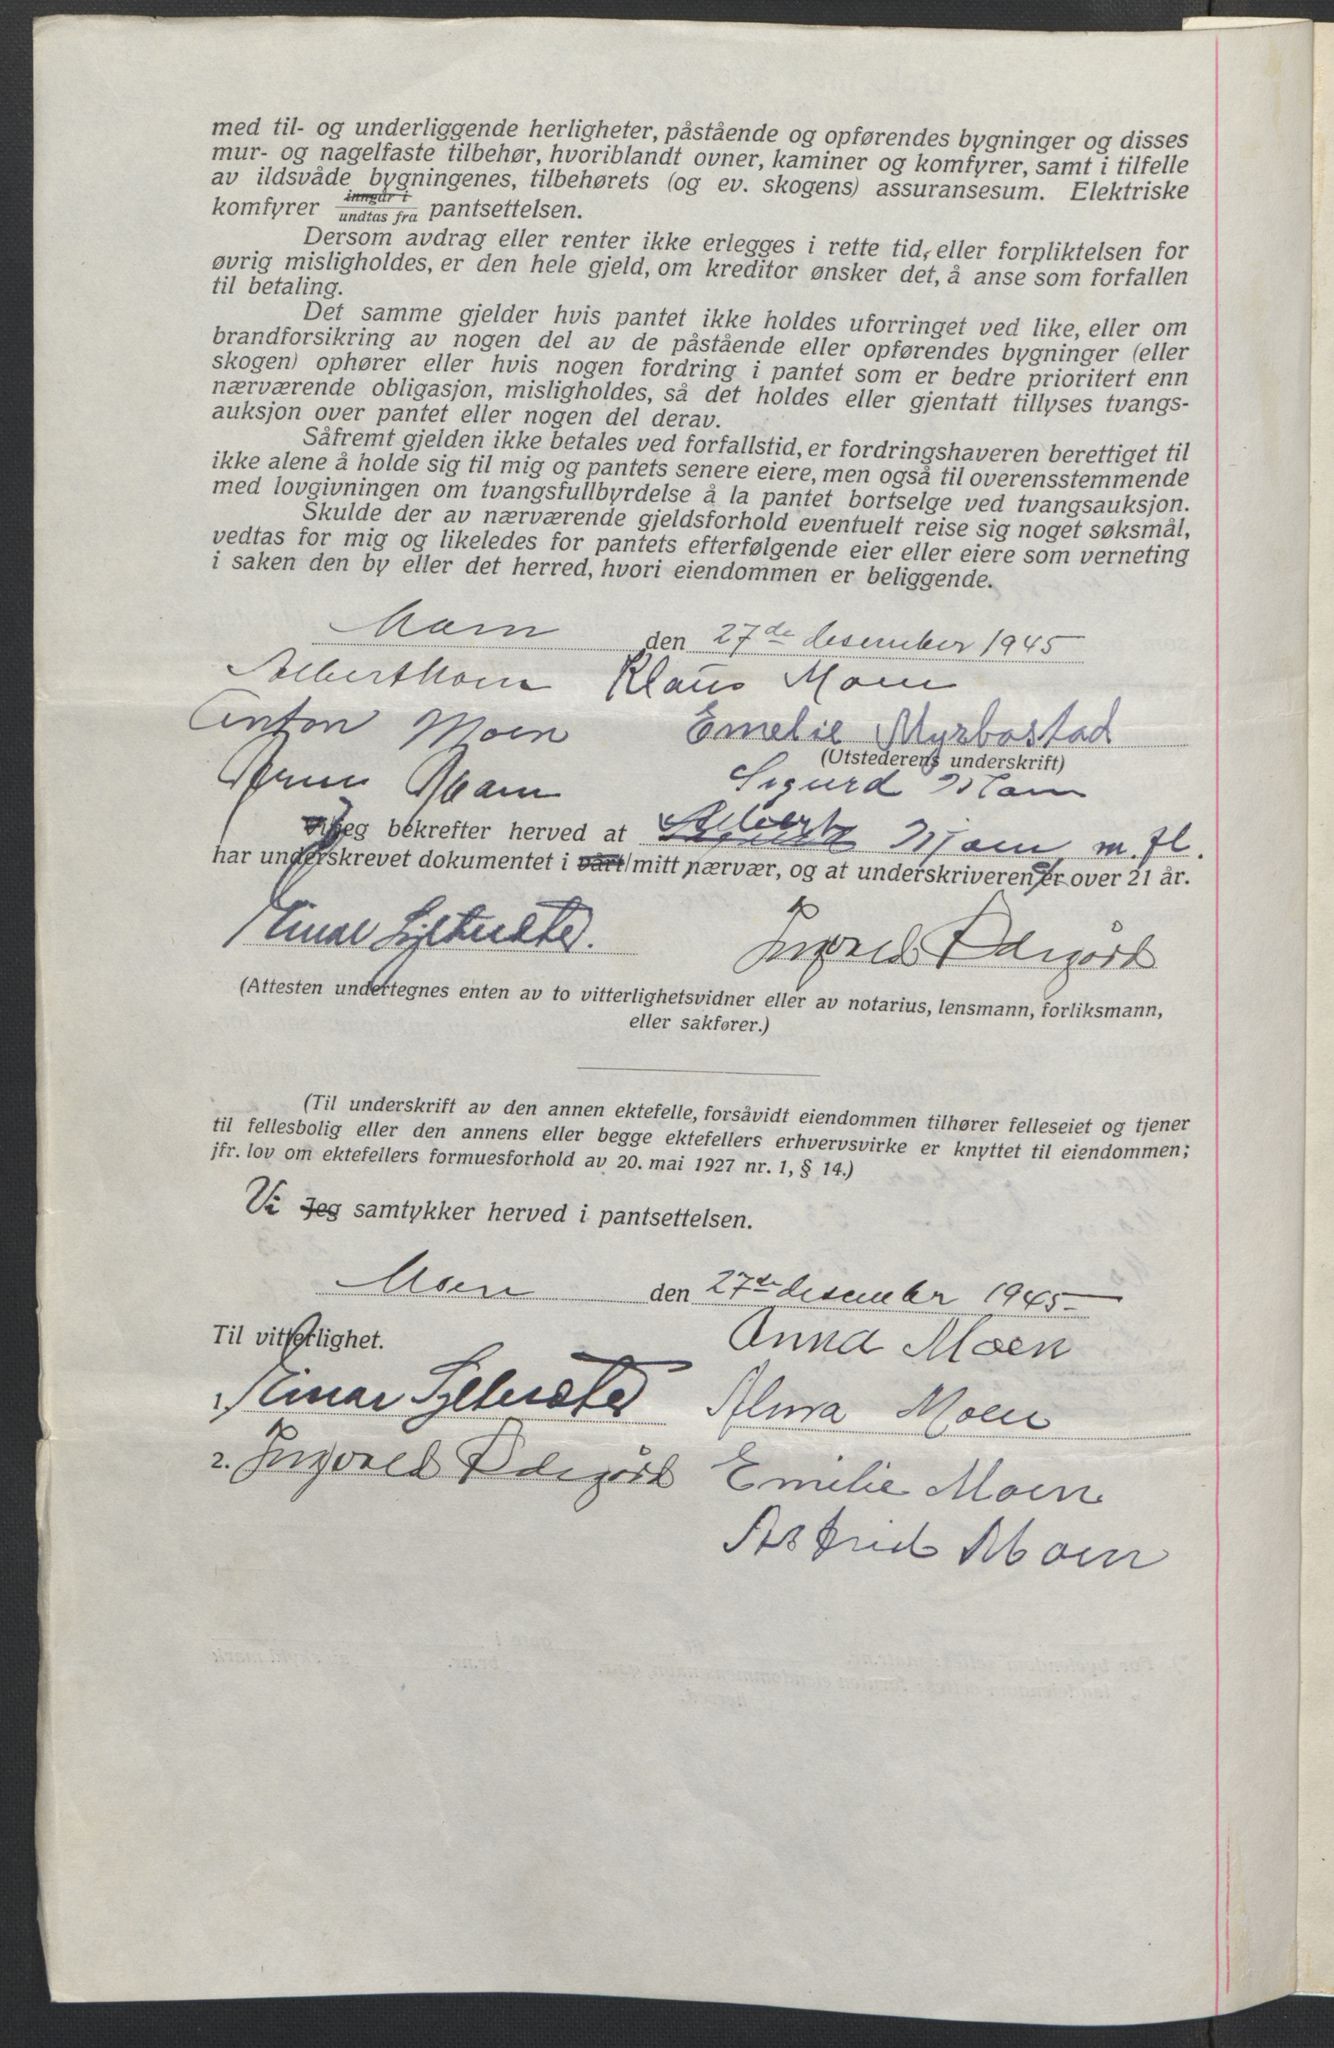 med til- og underliggende herligheter, påstående og opførendes bygninger og disses
mur- og nagelfaste tilbehør, hvoriblandt ovner, kaminer og komfyrer, samt i tilfelle
av ildsvåde bygningenes, tilbehørets (og ev. skogens) assuransesum. Elektriske
komfyrer inngår i / undtas fra pantsettelsen.
Dersom avdrag eller renter ikke erlegges i rette tid, eller forpliktelsen for
øvrig misligholdes, er den hele gjeld, om kreditor ønsker det, å anse som forfallen
til betaling.
Det samme gjelder hvis pantet ikke holdes uforringet ved like, eller om
brandforsikring av nogen del av de påstående eller opførendes bygninger (eller
skogen) ophører eller hvis nogen fordring i pantet som er bedre prioritert enn
nærværende obligasjon, misligholdes, så det holdes eller gjentatt tillyses tvangs-
auksjon over pantet eller nogen del derav.
Såfremt gjelden ikke betales ved forfallstid, er fordringshaveren berettiget til
ikke alene å holde sig til mig og pantets senere eiere, men også til overensstemmende
med lovgivningen om tvangsfullbyrdelse å la pantet bortselge ved tvangsauksjon.
Skulde der av nærværende gjeldsforhold eventuelt reise sig noget søksmål,
vedtas for mig og likeledes for pantets efterfølgende eier eller eiere som verneting
i saken den by eller det herred, hvori eiendommen er beliggende.
Moen den 27de desember 1945
Albert Moen Klaus Moen
Anton Moen Emelie Myrbostad
(Utstederens underskrift)
Arne Moen Sigurd Moen
Vi/jeg bekrefter herved at Albert Moen m. fl.
har underskrevet dokumentet i vårt/mitt nærvær, og at underskriveren er over 21 år.
Einar Sylteseter. Ingvald Ødegård
(Attesten undertegnes enten av to vitterlighetsvidner eller av notarius, lensmann, forliksmann,
eller sakfører.)
(Til underskrift av den annen ektefelle, forsåvidt eiendommen tilhører felleseiet og tjener
til fellesbolig eller den annens eller begge ektefellers erhvervsvirke er knyttet til eiendommen;
jfr. lov om ektefellers formuesforhold av 20. mai 1927 nr. 1, § 14.)
Vi Jeg samtykker herved i pantsettelsen.
Moen den 27de desember 1945
Til vitterlighet. Anna Moen
1. Einar Sylteseter Alma Moen
2. Ingvald Ødegård Emilie Moen
Astrid Moen